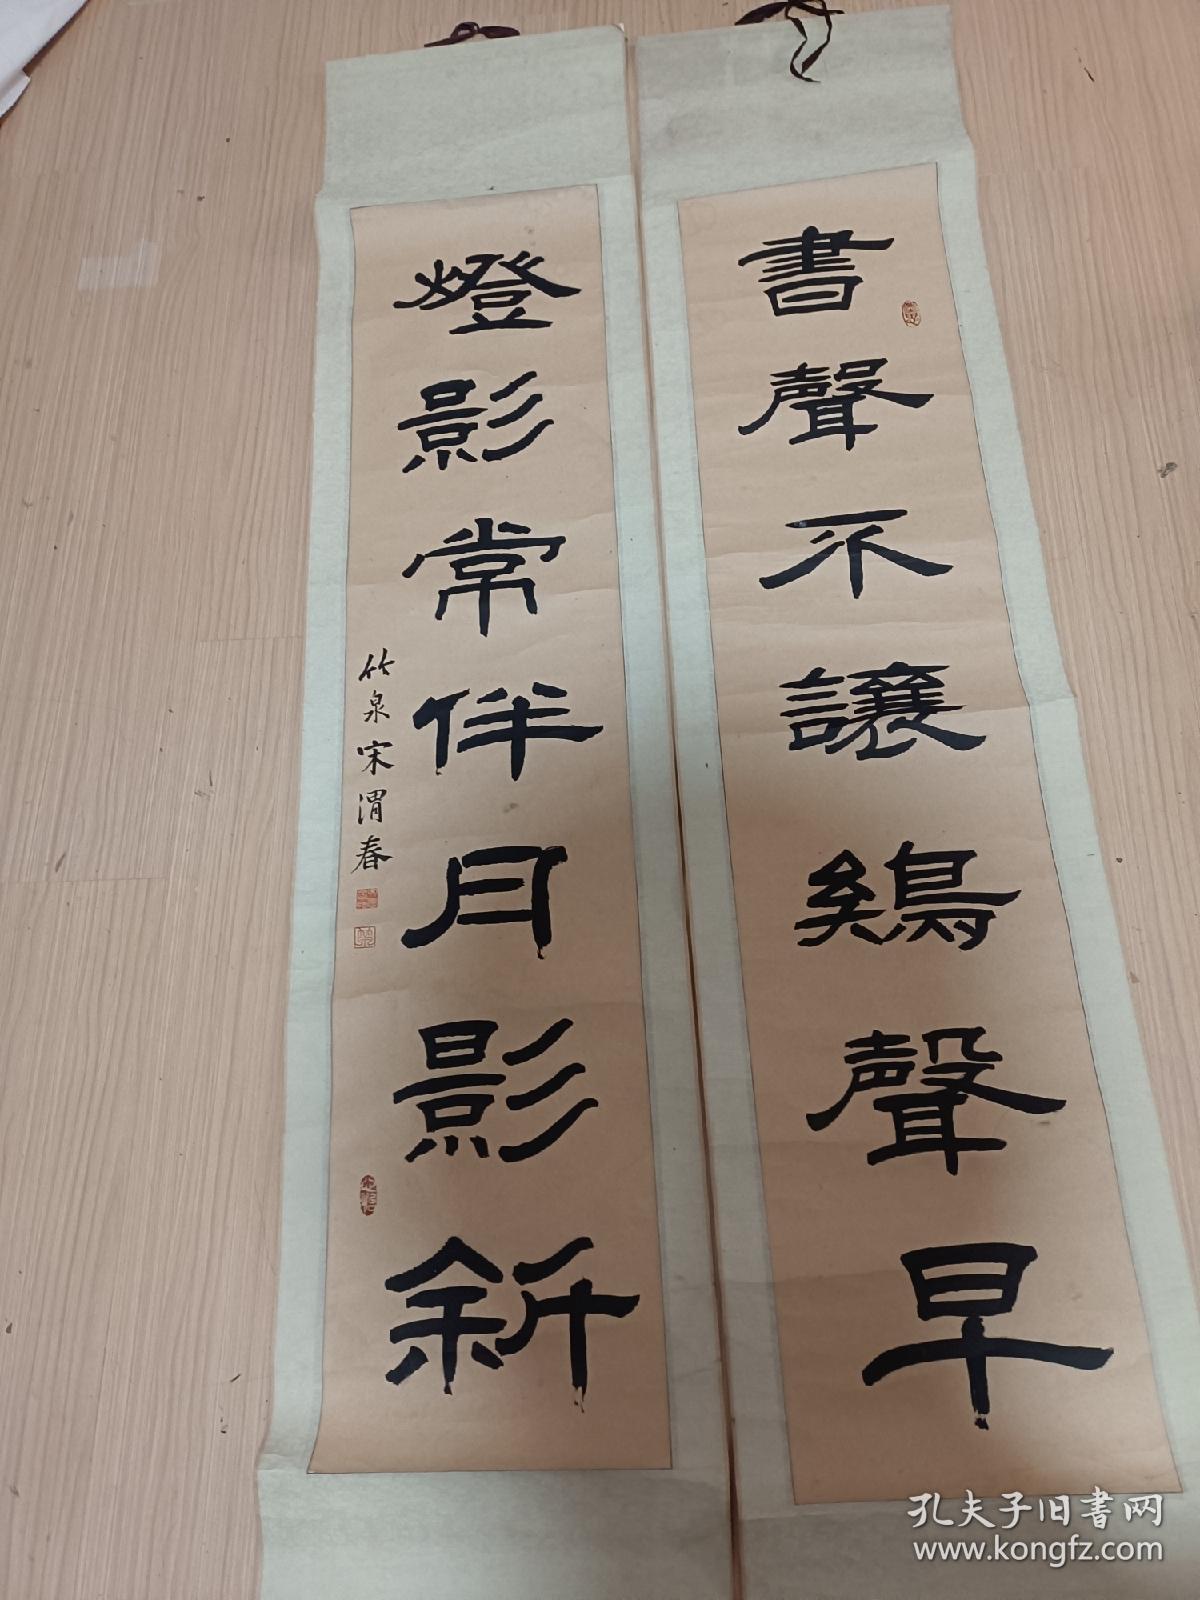 書聲不讓鷄聲早
燈影常伴月影斜
竹泉宋渭春
孔夫子旧书网
www.kongfz.com